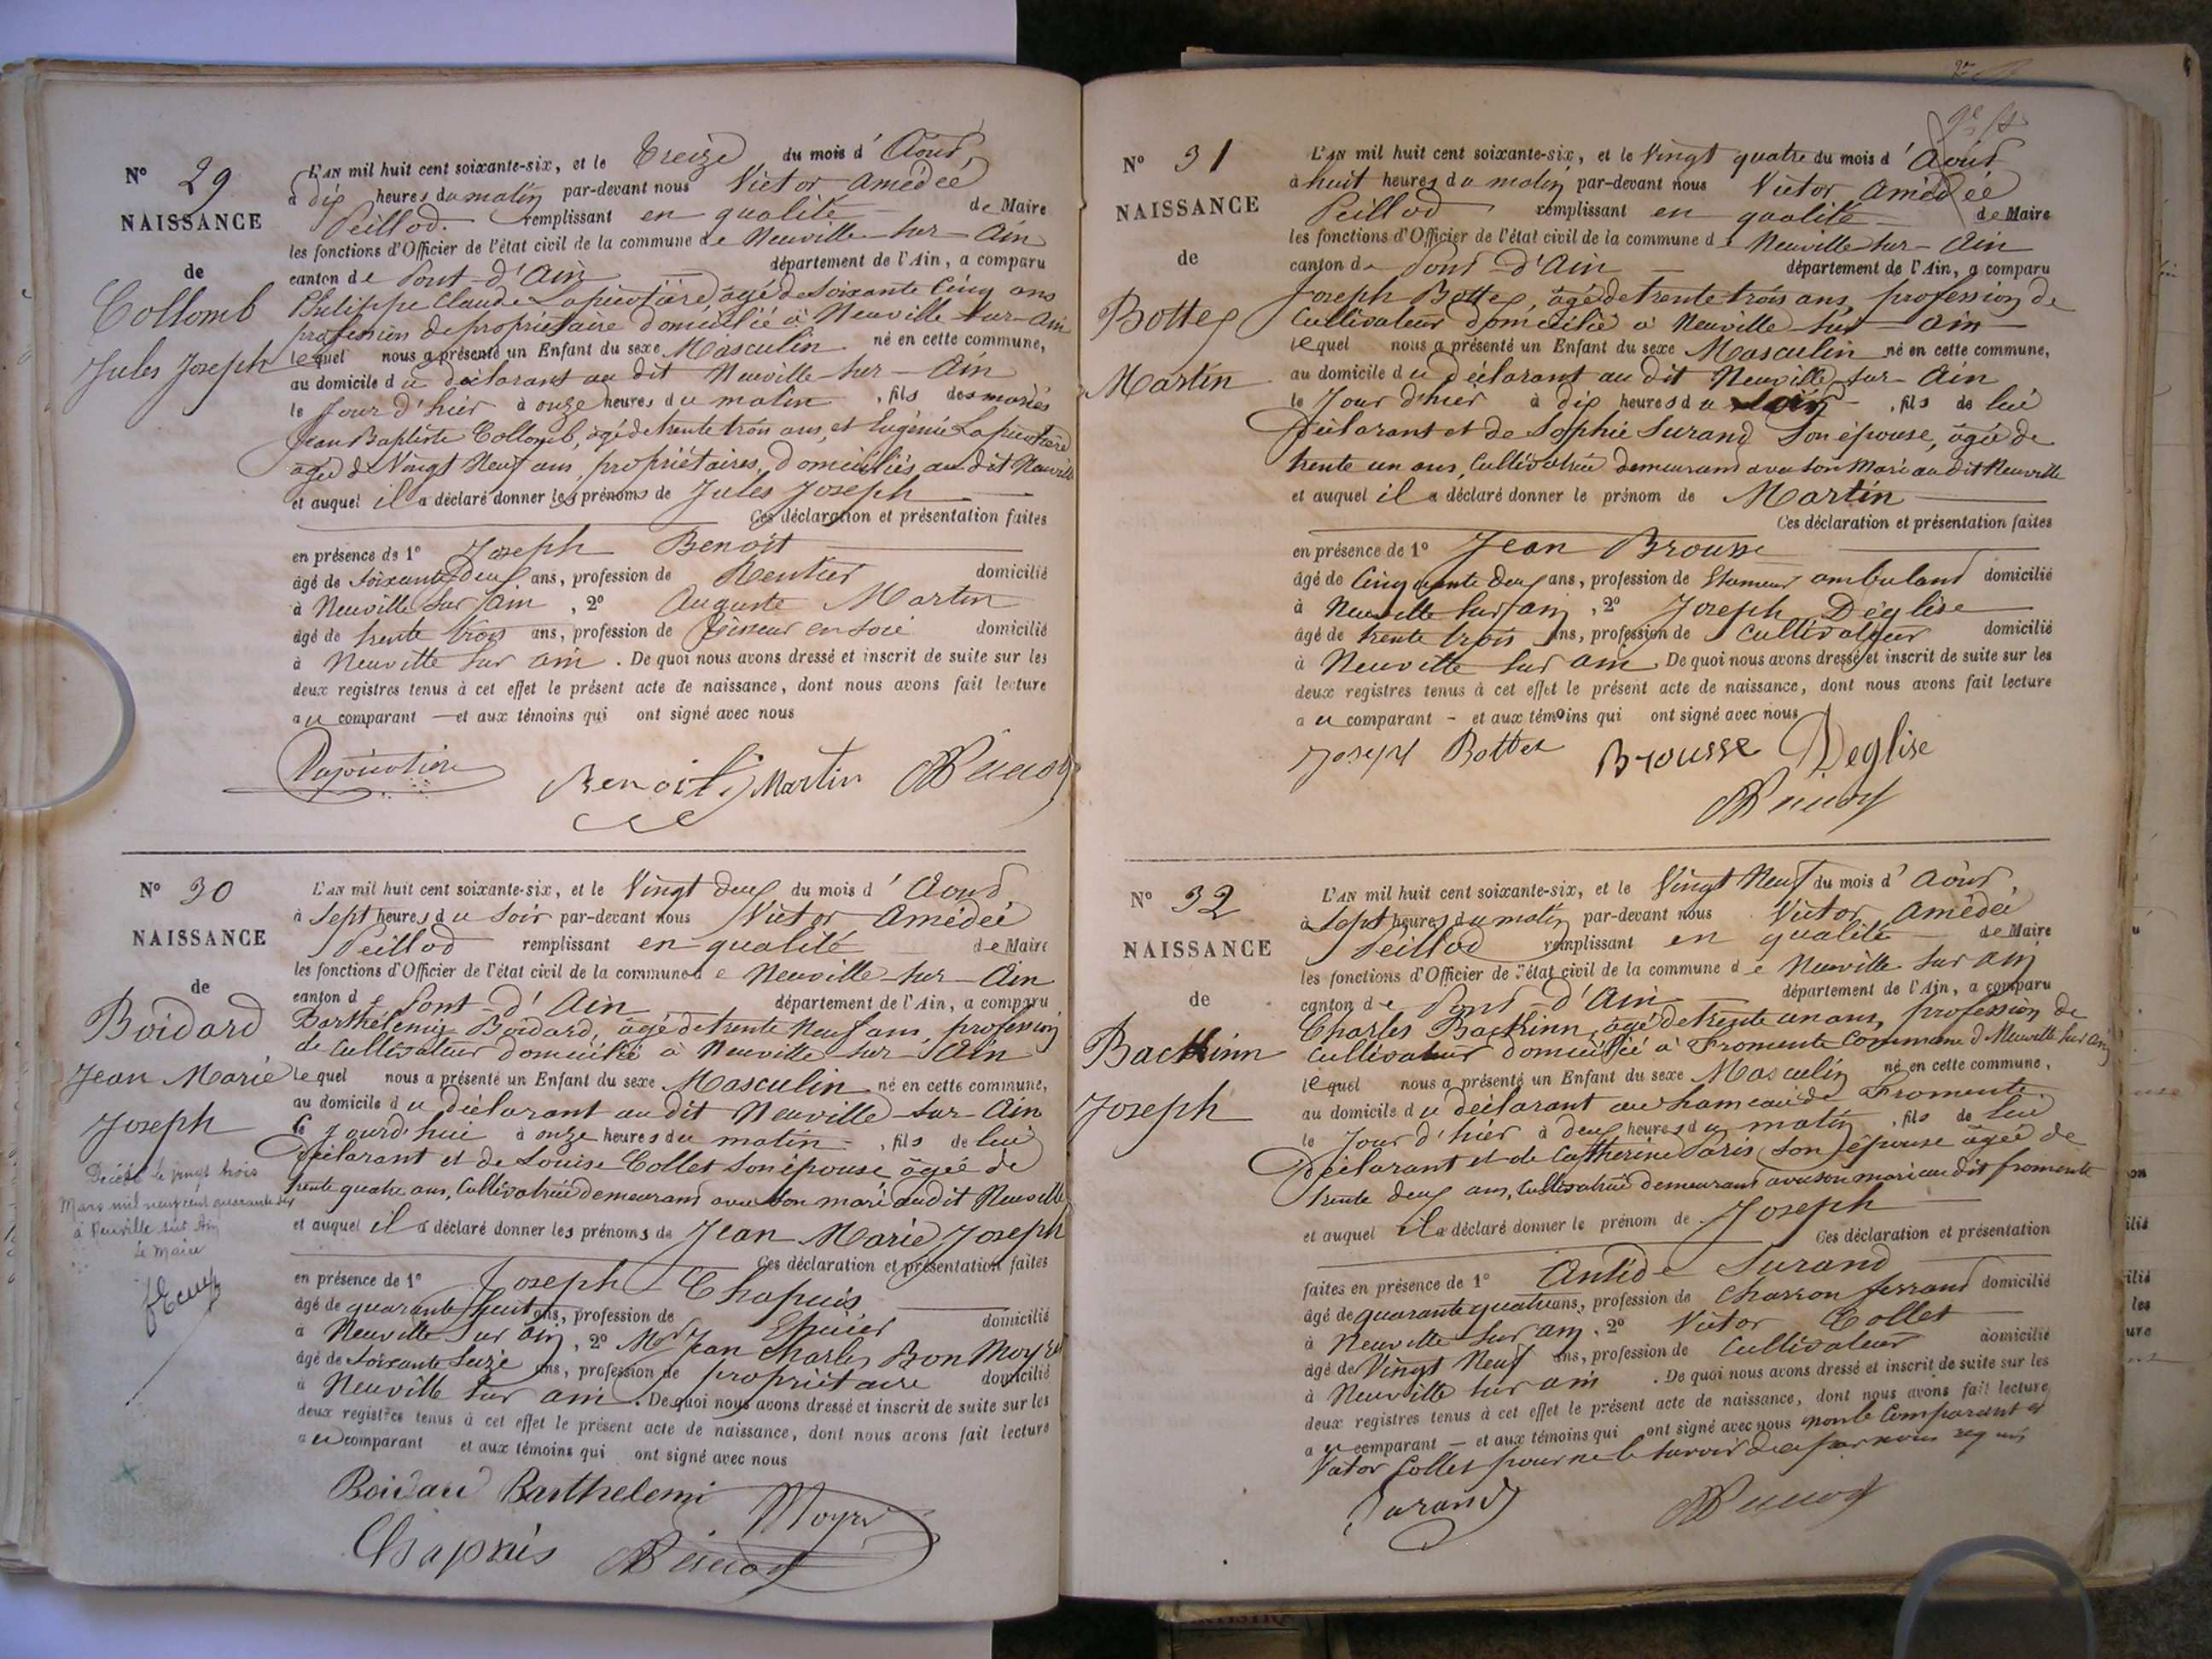 N° 29
NAISSANCE
de
Collomb
Jules Joseph
L'AN mil huit cent soixante-six, et le Treize du mois d'Aout,
à dix heures du matin par-devant nous Victor Amédée
Peillod remplissant en qualité de Maire
les fonctions d'Officier de l'état civil de la commune de Neuville-sur-Ain
canton de Pont-d'Ain département de l'Ain, a comparu
Philippe Claude âgé de Soixante Cinq ans
profession de propriétaire domicilié à Neuville sur-Ain
lequel nous a présenté un Enfant du sexe Masculin né en cette commune,
au domicile du déclarant au dit Neuville-sur-Ain
le Jour d'hier à onze heures du matin, fils des mariés
Jean Baptiste Collomb, âgé de trente trois ans, et Eugénie
âgée de Vingt Neuf ans, propriétaires, domiciliés au dit Neuville
et auquel il a déclaré donner les prénoms de Jules Joseph
Ces déclaration et présentation faites
en présence de 1° Joseph Benoit
âgé de soixante deux ans, profession de Rentier domicilié
à Neuville sur Ain, 2° Auguste Martin
âgé de trente trois ans, profession de en soie domicilié
à Neuville sur ain. De quoi nous avons dressé et inscrit de suite sur les
deux registres tenus à cet effet le présent acte de naissance, dont nous avons fait lecture
au comparant — et aux témoins qui ont signé avec nous
Benoit Martin
N° 30
NAISSANCE
de
Boidard
Jean Marie
Joseph
Décédé le vingt trois
Mars mil neuf cent quarante six
à Neuville sur Ain
Le Maire
L'AN mil huit cent soixante-six, et le Vingt deux du mois d'Aout
à Sept heures du Soir par-devant nous Victor Amédée
Peillod remplissant en qualité de Maire
les fonctions d'Officier de l'état civil de la commune de Neuville-sur-Ain
canton de Pont-d'Ain département de l'Ain, a comparu
Barthélemy Boidard, âgé de trente Neuf ans, profession
de Cultivateur domicilié à Neuville-sur-Ain
lequel nous a présenté un Enfant du sexe Masculin né en cette commune,
au domicile du déclarant au dit Neuville-sur-Ain
ce jourd'hui à onze heures du matin, fils de lui
Déclarant et de Louise Collet son épouse âgée de
trente quatre ans, Cultivatrice demeurant avec son mari audit Neuville
et auquel il a déclaré donner les prénoms de Jean Marie Joseph
Ces déclaration et présentation faites
en présence de 1° Joseph Chapuis
âgé de quarante huit ans, profession de Epicier domicilié
à Neuville sur ain, 2° Mr Jean Charles Bon Moyret
âgé de Soixante Seize ans, profession de propriétaire domicilié
à Neuville sur ain. De quoi nous avons dressé et inscrit de suite sur les
deux registres tenus à cet effet le présent acte de naissance, dont nous avons fait lecture
au comparant et aux témoins qui ont signé avec nous
Boidard Barthelemi Moyret
Chapuis
N° 31
NAISSANCE
de
Bottex
Martin
L'AN mil huit cent soixante-six, et le Vingt quatre du mois d'Aout
à huit heures du matin par-devant nous Victor Amédée
Peillod remplissant en qualité de Maire
les fonctions d'Officier de l'état civil de la commune de Neuville-sur-Ain
canton de Pont-d'Ain département de l'Ain, a comparu
Joseph Bottex, âgé de trente trois ans, profession de
Cultivateur domicilié à Neuville-sur-ain
lequel nous a présenté un Enfant du sexe Masculin né en cette commune,
au domicile du déclarant au dit Neuville-sur-Ain
le Jour d'hier à dix heures du soir, fils de lui
Déclarant et de Sophie Surand son épouse, âgée de
trente un ans, Cultivatrice demeurant avec son Mari au dit Neuville
et auquel il a déclaré donner le prénom de Martin
Ces déclaration et présentation faites
en présence de 1° Jean Brousse
âgé de Cinquante deux ans, profession de Etameur ambulant domicilié
à Neuville sur ain, 2° Joseph Déglise
âgé de trente trois ans, profession de Cultivateur domicilié
à Neuville sur ain De quoi nous avons dressé et inscrit de suite sur les
deux registres tenus à cet effet le présent acte de naissance, dont nous avons fait lecture
au comparant - et aux témoins qui ont signé avec nous
Joseph Bottex Brousse Deglise
N° 32
NAISSANCE
de
Backinn
Joseph
L'AN mil huit cent soixante-six, et le Vingt Neuf du mois d'Aout,
à Sept heures du matin par-devant nous Victor Amédée
Peillod remplissant en qualité de Maire
les fonctions d'Officier de l'état civil de la commune de Neuville sur ain
canton de Pont-d'Ain département de l'Ain, a comparu
Charles Backinn, âgé de trente un ans, profession de
Cultivateur domicilié à Fromente Commune d Neuville sur ain
lequel nous a présenté un Enfant du sexe Masculin né en cette commune,
au domicile du déclarant au hameau de Fromente
le Jour d'hier à deux heures du matin, fils de lui
Déclarant et de Catherine Paris son épouse âgée de
trente deux ans, Cultivatrice demeurant avec son mari au dit fromente
et auquel il a déclaré donner le prénom de Joseph
Ces déclaration et présentation
faites en présence de 1° Antide Surand
âgé de quarante quatre ans, profession de Charron ferrant domicilié
à Neuville sur ain, 2° Victor Collet
âgé de Vingt Neuf ans, profession de Cultivateur domicilié
à Neuville sur ain. De quoi nous avons dressé et inscrit de suite sur les
deux registres tenus à cet effet le présent acte de naissance, dont nous avons fait lecture
au comparant — et aux témoins qui ont signé avec nous non le Comparant et
Victor Collet pour ne le savoir de ce par nous requis
Surand